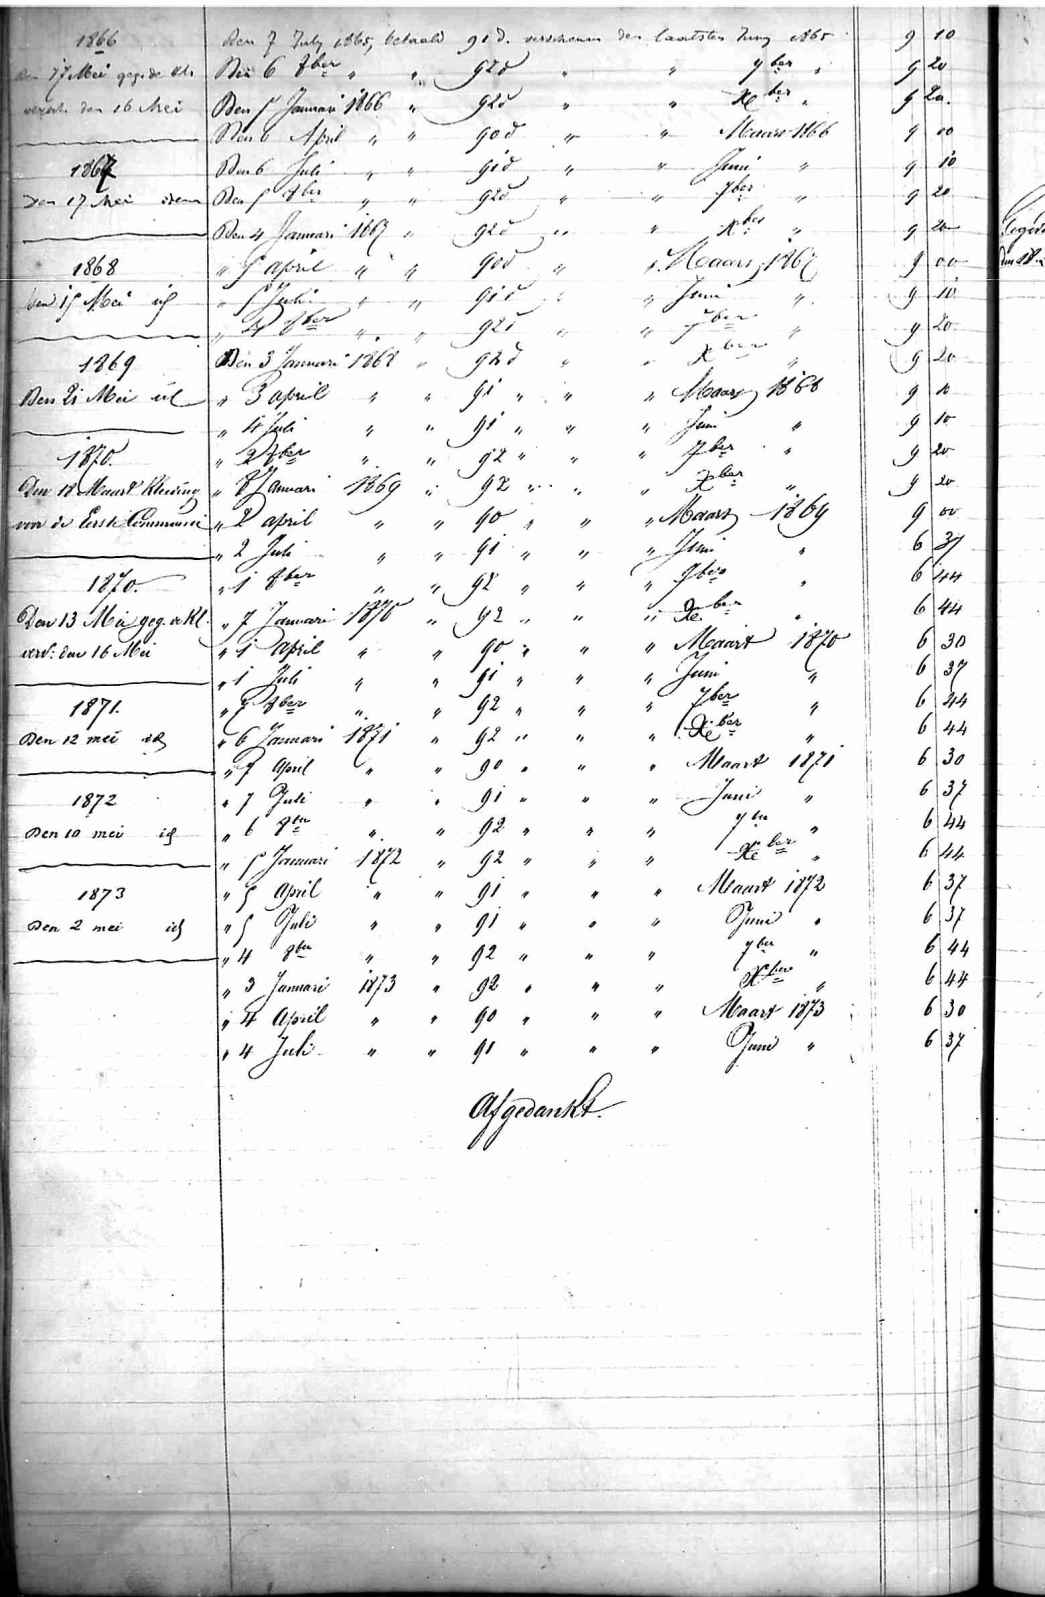 1866
den 17 Mei gegev de Kl.
versch. den 16 Mei
1867
Den 17 Mei idem
1868
den 15 Mei id
1869
Den 21 Mei id
1870.
Den 18 Maart Kleeding
voor de Eerste Communie
1870.
Den 13 Mei geg. de Kl.
versc. den 16 Mei
1871.
Den 12 mei id
1872
Den 10 mei id
1873
Den 2 mei id
Den 7 July 1865, betaald 91 d. verschenen den laatsten Juny 1865 9 10
Den 6 8ber " " 92 d " " 7ber " 9 20
Den 5 Januari 1866 " 92 d " " Xber " 9 20.
Den 6 April " " 90 d " " Maars 1866 9 00
Den 6 Juli " " 91 d " " Juni " 9 10
Den 5 8ber " " 92 d " " 7ber " 9 20
Den 4 Januari 1867 " 92 d " " Xber " 9 20
" 5 april " " 90 d " " Maars 1867 9 00
" 5 Juli " " 91 d " " Juni " 9 10
" 4 8ber " " 92 d " " 7ber " 9 20
Den 3 Januari 1868 " 92 d " " Xber " 9 20
" 3 april " " 91 " " " Maars 1868 9 10
" 4 Juli " " 91 " " " Juni " 9 10
" 2 8ber " " 92 " " " 7ber " 9 20
" 8 Januari 1869 " 92 " " " Xber " 9 20
" 2 april " " 90 " " " Maars 1869 9 00
" 2 Juli " " 91 " " " Juni " 6 37
" 1 8ber " " 92 " " " 7ber " 6 44
" 7 Januari 1870 " 92 " " " Xber " 6 44
" 1 April " " 90 " " " Maart 1870 6 30
" 1 Juli " " 91 " " " Juni " 6 37
" 7 8ber " " 92 " " " 7ber " 6 44
" 6 Januari 1871 " 92 " " " Xber " 6 44
" 7 April " " 90 " " " Maart 1871 6 30
" 7 Juli " " 91 " " " Juni " 6 37
" 6 8ber " " 92 " " " 7ber " 6 44
" 5 Januari 1872 " 92 " " " Xber " 6 44
" 5 April " " 91 " " " Maart 1872 6 37
" 5 Juli " " 91 " " " Juni " 6 37
" 4 8ber " " 92 " " " 7ber " 6 44
" 3 Januari 1873 " 92 " " " Xber " 6 44
" 4 April " " 90 " " " Maart 1873 6 30
" 4 Juli " " 91 " " " Juni " 6 37
Afgedankt.